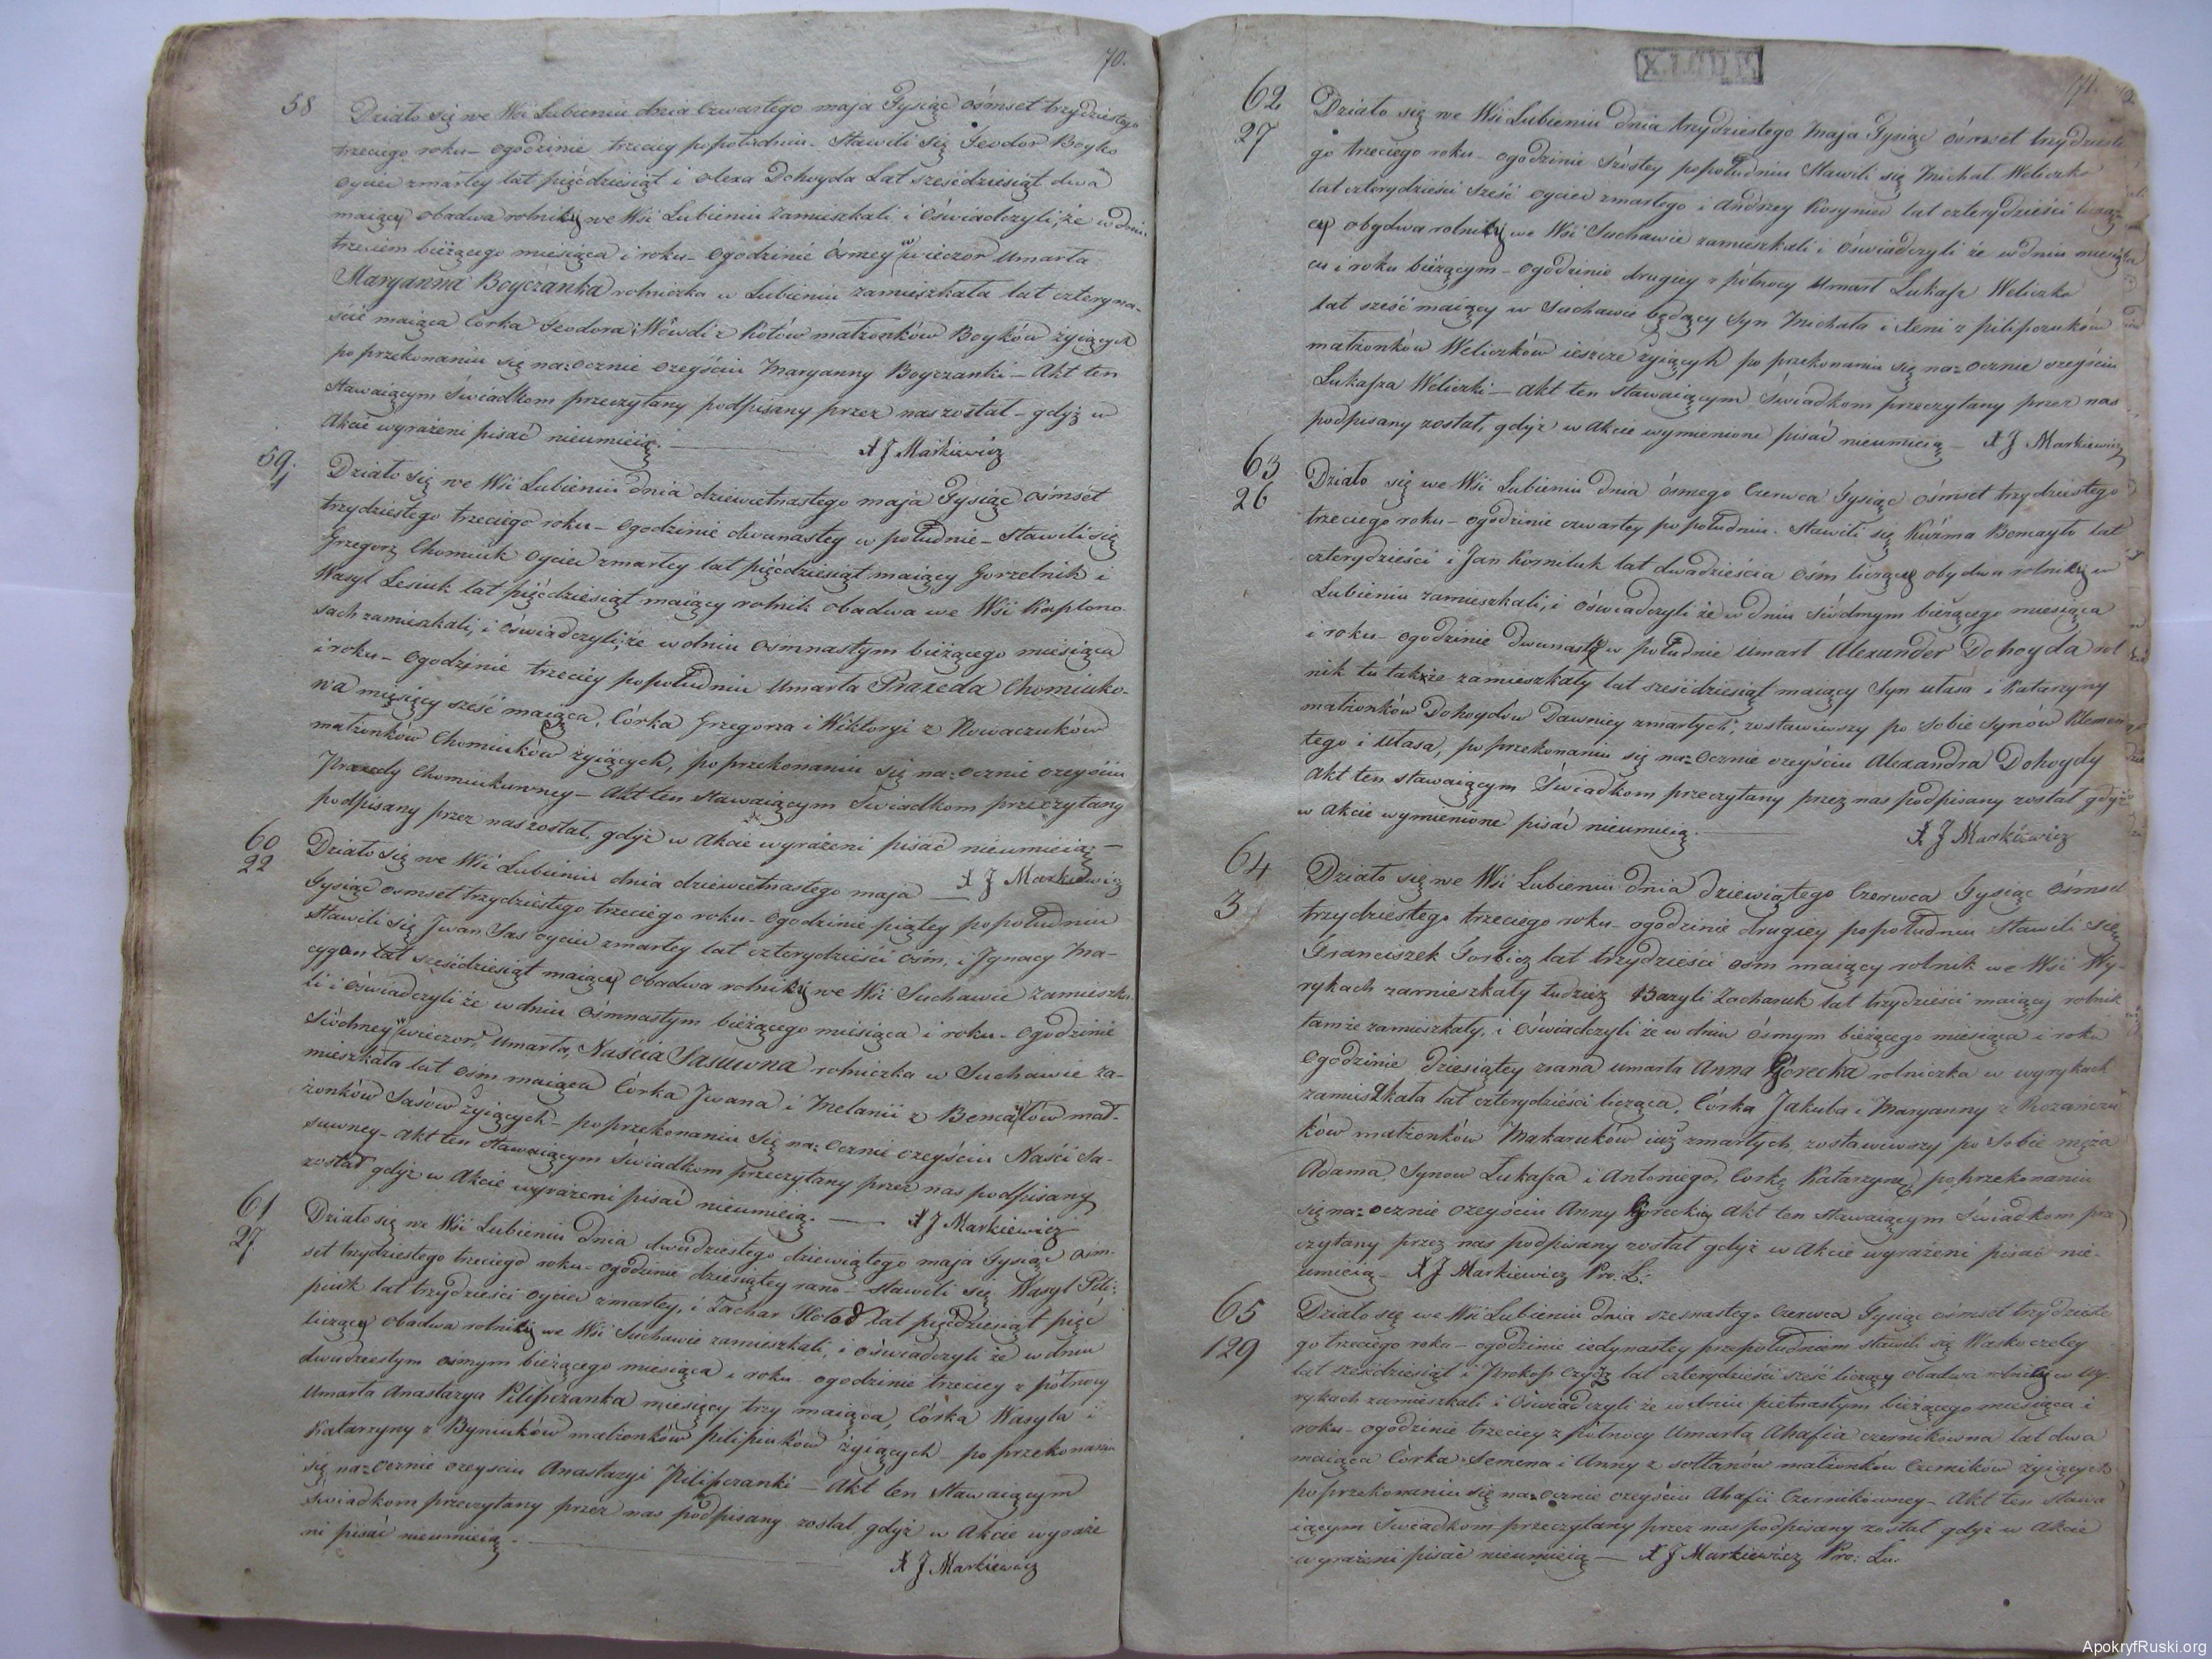 70.
58
Działo się we Wsi Lubieniu dnia Czwartego maja Tysiąc ośmset trzydziestego
trzeciego roku – ogodzinie trzeciey popołudniu – Stawili się Teodor Boyko
oyciec zmarłey lat pięćdziesiąt i Olexa Dohoyda Lat sześćdziesiąt dwa
maiący obadwa rolnicy we Wsi Lubieniu zamieszkali i Oświadczyli, że w dniu
trzeciem bieżącego miesiąca i roku – ogodzinie ósmey wieczor umarła
Maryanna Boyczanka rolniczka w Lubieniu zamieszkała lat czterna-
ście maiąca Córka Teodora i Mowdi z Kotów małżonków Boyków żyiących
po przekonaniu się na=ocznie ozeyściu Maryanny Boyczanki – Akt ten
stawaiącym Świadkom przeczytany podpisany przez nas został – gdyż w
Akcie wyrażeni pisać nieumieią.
X J Markiewicz
59
Działo się we Wsi Lubieniu dnia dziewiętnastego maja Tysiąc ośmset
trzydziestego trzeciego roku – ogodzinie dwunastey w południe – stawili się
Grzegorz Chomiuk oyciec zmarłey lat pięćdziesiąt maiący Gorzelnik i
Wasyl Lesiuk lat pięćdziesiąt maiący rolnik obadwa we Wsi Kaplono-
sach zamieszkali, i oświadczyli, że w dniu ośmnastym bieżącego miesiąca
i roku – ogodzinie trzeciey popołudniu umarła Praxeda Chomiuko-
wna miesięcy sześć maiąca, Córka Grzegorza i Wiktoryi z Nowaczuków
małżonków Chomiuków żyiących, po przekonaniu się na=ocznie ozeyściu
Praxedy Chomiukuwney – Akt ten stawaiącym Świadkom przeczytany
podpisany przez nas został, gdyż w Akcie wyrażeni pisać nieumieią –
X J Markiewicz
60
22
Działo się we Wsi Lubieniu dnia dziewiętnastego maja
Tysiąc osmset trzydziestego trzeciego roku – ogodzinie piątey popołudniu
Stawili się Jwan Sas oyciec zmarłey lat czterydzieści ośm, i Jgnacy Ma-
cygon lat sześćdziesiąt maiący obadwa rolnicy we Wsi Suchawie zamieszka-
li i oświadczyli że w dniu Ośmnastym bieżącego miesiąca i roku – ogodzinie
siódmey wieczor, umarła, Naścia Sasuwna rolniczka w Suchawie za-
mieszkała lat ośm maiąca Córka Jwana i Melanii z Bencaytów mał-
żonków Sasów żyiących – po przekonaniu się na=ocznie ozeyściu Naści Sa-
suwney – akt ten stawaiącym świadkom przeczytany przez nas podpisany
został gdyż w Akcie wyrażeni pisać nieumieią. – X J Markiewicz
61
27.
Działo się we Wsi Lubieniu Dnia dwudziestego dziewiątego maja Tysiąc ośm-
set trzydziestego trzeciego roku – ogodzinie dziesiątey rano – stawili się Wasyl Pili-
piuk lat trzydzieści oyciec zmarłey, i Zachar Hołod lat pięćdziesiąt pięć
liczący obadwa rolnicy we Wsi Suchawie zamieszkali, i oświadczyli że w dniu
dwudziestym osmym bieżącego miesiąca i roku ogodzinie trzeciey z północy
Umarła Anastazya Pilipczanka miesięcy trzy maiąca, Córka Wasyla i
Katarzyny z Byniuków małżonków Pilipiuków żyiących – po przekonaniu
się na=ocznie ozeysciu Anastazyi Pilipczanki – Akt ten stawaiącym
świadkom przeczytany przez nas podpisany został gdyż w Akcie wyraże
ni pisać nieumieią.
X J Markiewicz
71.
62
27
Działo się we Wsi Lubieniu dnia trzydziestego Maja Tysiąc ośmset trzydzieste
go trzeciego roku – ogodzinie szóstey popołudniu Stawili się Michał Weliczko
lat czterydzieści sześć oyciec zmarłego i Andrzey Koryniec lat czterydzieści licząz-
cy obydwa rolnicy we Wsi Suchawie zamieszkali i oświadczyli że w dniu miesią
cu i roku bieżącym – ogodzinie drugiey z północy umarł Łukasz Weliczko
lat sześć maiący w Suchawie będący Syn Michała i Xeni z Pilipczuków
małżonków Weliczków ieszcze żyiących po przekonaniu się na=ocznie ozeyściu
Łukasza Weliczki – akt ten stawaiącym Świadkom przeczytany przez nas
podpisany został, gdyż w akcie wymienione pisać nieumieią – X J Markiewicz
63
26
Działo się we Wsi Lubieniu Dnia ósmego Czerwca Tysiąc ośmset trzydziestego
trzeciego roku – ogodzinie czwartey po południu. Stawili się Kuźma Bencayło lat
czterydzieści i Jan Korniluk lat dwadzieścia ośm liczący obydwa rolnicy w
Lubieniu zamieszkali, i oświadczyli że w dniu siódmym bieżącego miesiąca
i roku – ogodzinie Dwunastey w południe umarł Alexander Dohoyda rol
nik tu także zamieszkały lat sześćdziesiąt maiący Syn Ułasa i Katarzyny
małżonków Dohoydów Dawniey zmarłych, zostawiwszy po sobie Synów Klemen
tego i Ułasa, po przekonaniu się na=Ocznie ozeyściu Alexandra Dohoydy
akt ten stawaiącym Świadkom przeczytany przez nas podpisany został gdyż
w akcie wymienione pisać nieumieią.
X J Markiewicz
64
3
Działo się we Wsi Lubieniu Dnia Dziewiątego Czerwca Tysiąc ośmset
trzydziestego trzeciego roku – ogodzinie drugiey popołudniu stawili się
Franciszek Gorbicz lat trzydzieści ośm maiący rolnik we Wsi Wy-
rykach zamieszkały tudzież Bazyli Zacharuk lat trzydzieści maiący rolnik
tamże zamieszkały, i oświadczyli że w dniu ósmym bieżącego miesiąca i roku
ogodzinie dziesiątey zrana umarła Anna Górecka rolniczka w wyrykach
zamieszkała lat czterydzieści licząca, Córka Jakuba i Maryanny z Rozańczu
ków małżonków Makaruków iuż zmarłych zostawiwszy po sobie męża
Adama, Synow Łukasza i Antoniego, Corkę Katarzynę, po przekonaniu
się na=ocznie ozeysciu Anny Góreckiey Akt ten stawaiącym świadkom prze
czytany przez nas podpisany został gdyż w akcie wyrażeni pisać nie-
umieią – X J Markiewicz Pro: L:
65
129
Działo się we Wsi Lubieniu dnia szesnastego Czerwca Tysiąc ośmset trzydzieste
go trzeciego roku – ogodzinie iedynastey przepołudniem stawili się Wasko czeley
lat sześćdziesiąt i Prokop Czyż lat czterydzieści sześć liczący obadwa rolnicy w Wy-
rykach zamieszkali i Oświadczyli że w dniu piętnastym bieżącego miesiąca i
roku – ogodzinie trzeciey z północy Umarła Ahafia czernikówna lat dwa
maiąca Córka Semena i Anny z sołtanów małżonków Czerników żyiących
po przekonaniu się na=ocznie ozeyściu Ahafii Czernikówney – Akt ten stawa
iącym Świadkom przeczytany przez nas podpisany został gdyż w akcie
wyrażeni pisać nieumieią – X J Markiewicz Pro: Lu:
ApokryfRuski.org